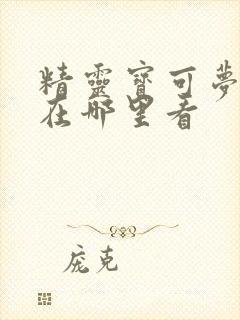 精靈寶可夢
在哪里看
庞克